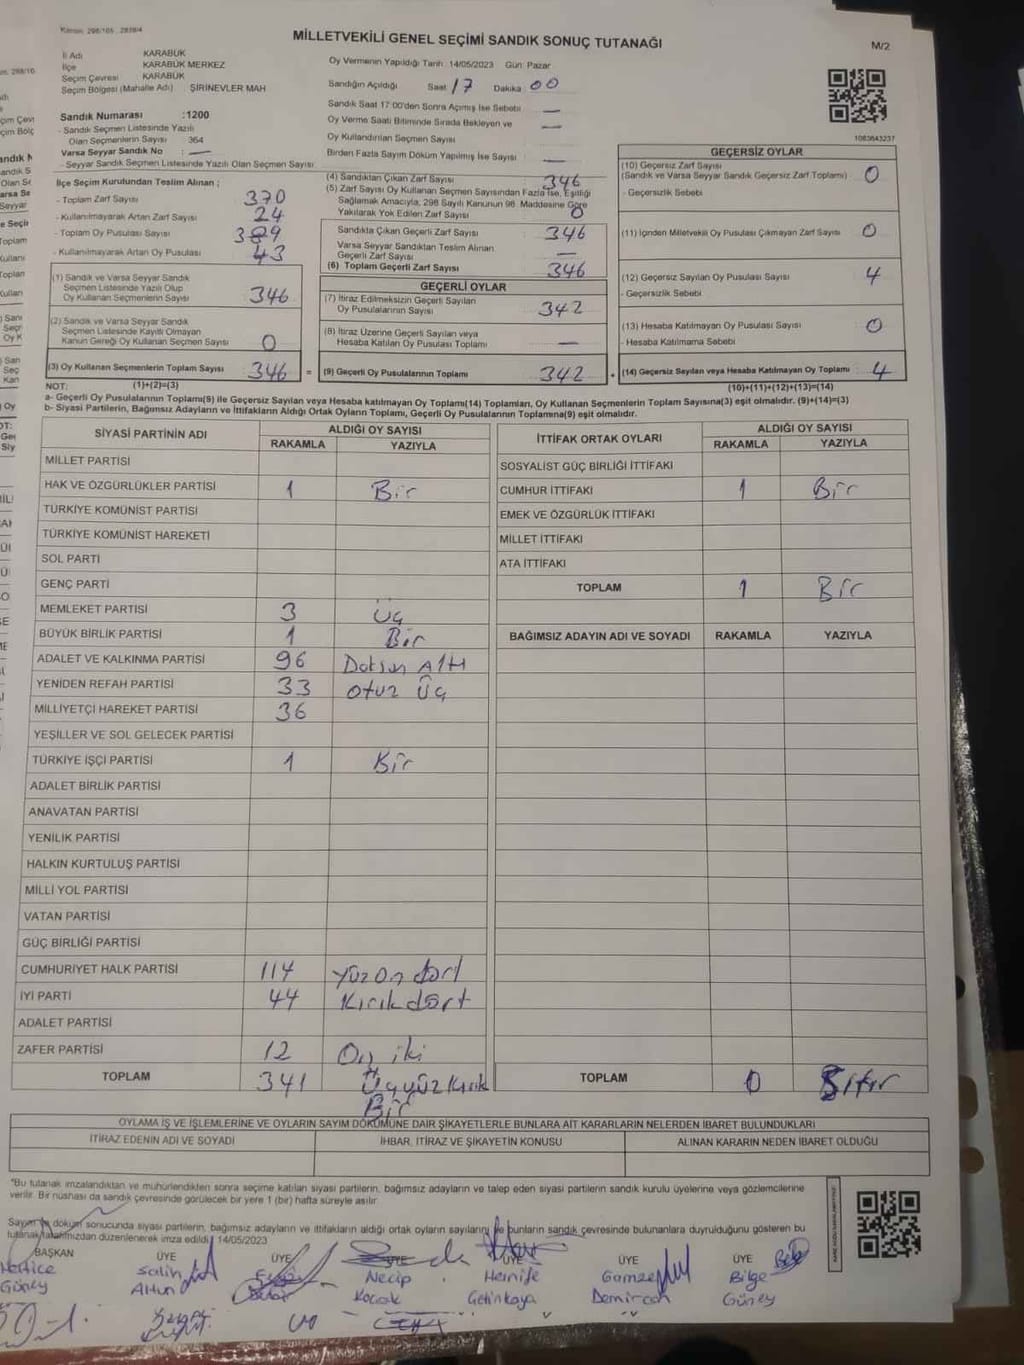 Kanun: 298/105 , 2839/4
MİLLETVEKİLİ GENEL SEÇİMİ SANDIK SONUÇ TUTANAĞI
M/2
İl Adı KARABÜK
İlçe KARABÜK MERKEZ
Seçim Çevresi KARABÜK
Seçim Bölgesi (Mahalle Adı) ŞİRİNEVLER MAH
Oy Vermenin Yapıldığı Tarih: 14/05/2023 Gün: Pazar
Sandığın Açıldığı Saat 17 Dakika 00
Sandık Saat 17:00'den Sonra Açımış İse Sebebi —
Oy Verme Saati Bitiminde Sırada Bekleyen ve —
Oy Kullandırılan Seçmen Sayısı
Birden Fazla Sayım Döküm Yapılmış İse Sayısı —
1083643237
Sandık Numarası :1200
- Sandık Seçmen Listesinde Yazılı
Olan Seçmenlerin Sayısı 364
Varsa Seyyar Sandık No : —
- Seyyar Sandık Seçmen Listesinde Yazılı Olan Seçmen Sayısı:
İlçe Seçim Kurulundan Teslim Alınan ;
- Toplam Zarf Sayısı 370
- Kullanılmayarak Artan Zarf Sayısı 24
- Toplam Oy Pusulası Sayısı 389
- Kullanılmayarak Artan Oy Pusulası 43
(1) Sandık ve Varsa Seyyar Sandık
Seçmen Listesinde Yazılı Olup
Oy Kullanan Seçmenlerin Sayısı 346
(2) Sandık ve Varsa Seyyar Sandık
Seçmen Listesinde Kayıtlı Olmayan
Kanun Gereği Oy Kullanan Seçmen Sayısı 0
(3) Oy Kullanan Seçmenlerin Toplam Sayısı 346 =
(4) Sandıktan Çıkan Zarf Sayısı : 346
(5) Zarf Sayısı Oy Kullanan Seçmen Sayısından Fazla İse, Eşitliği
Sağlamak Amacıyla, 298 Sayılı Kanunun 98. Maddesine Göre
Yakılarak Yok Edilen Zarf Sayısı 0
Sandıkta Çıkan Geçerli Zarf Sayısı 346
Varsa Seyyar Sandıktan Teslim Alınan
Geçerli Zarf Sayısı —
(6) Toplam Geçerli Zarf Sayısı 346
GEÇERLİ OYLAR
(7) İtiraz Edilmeksizin Geçerli Sayılan
Oy Pusulalarının Sayısı 342
(8) İtiraz Üzerine Geçerli Sayılan veya
Hesaba Katılan Oy Pusulası Toplamı —
(9) Geçerli Oy Pusulalarının Toplamı 342 +
GEÇERSİZ OYLAR
(10) Geçersiz Zarf Sayısı
(Sandık ve Varsa Seyyar Sandık Geçersiz Zarf Toplamı) 0
- Geçersizlik Sebebi
(11) İçinden Milletvekili Oy Pusulası Çıkmayan Zarf Sayısı 0
(12) Geçersiz Sayılan Oy Pusulası Sayısı 4
- Geçersizlik Sebebi
(13) Hesaba Katılmayan Oy Pusulası Sayısı 0
- Hesaba Katılmama Sebebi
(14) Geçersiz Sayılan veya Hesaba Katılmayan Oy Toplamı 4
NOT: (1)+(2)=(3)
(10)+(11)+(12)+(13)=(14)
a- Geçerli Oy Pusulalarının Toplamı(9) ile Geçersiz Sayılan veya Hesaba katılmayan Oy Toplamı(14) Toplamları, Oy Kullanan Seçmenlerin Toplam Sayısına(3) eşit olmalıdır. (9)+(14)=(3)
b- Siyasi Partilerin, Bağımsız Adayların ve İttifakların Aldığı Ortak Oyların Toplamı, Geçerli Oy Pusulalarının Toplamına(9) eşit olmalıdır.
SİYASİ PARTİNİN ADI ALDIĞI OY SAYISI
RAKAMLA YAZIYLA
MİLLET PARTİSİ
HAK VE ÖZGÜRLÜKLER PARTİSİ 1 Bir
TÜRKİYE KOMÜNİST PARTİSİ
TÜRKİYE KOMÜNİST HAREKETİ
SOL PARTİ
GENÇ PARTİ
MEMLEKET PARTİSİ 3 üç
BÜYÜK BİRLİK PARTİSİ 1 Bir
ADALET VE KALKINMA PARTİSİ 96 Doksan Altı
YENİDEN REFAH PARTİSİ 33 otuz üç
MİLLİYETÇİ HAREKET PARTİSİ 36
YEŞİLLER VE SOL GELECEK PARTİSİ
TÜRKİYE İŞÇİ PARTİSİ 1 Bir
ADALET BİRLİK PARTİSİ
ANAVATAN PARTİSİ
YENİLİK PARTİSİ
HALKIN KURTULUŞ PARTİSİ
MİLLİ YOL PARTİSİ
VATAN PARTİSİ
GÜÇ BİRLİĞİ PARTİSİ
CUMHURİYET HALK PARTİSİ 114 Yüz On dört
İYİ PARTİ 44 Kırık dört
ADALET PARTİSİ
ZAFER PARTİSİ 12 On iki
TOPLAM 341 Üçyüz Kırık
Bir
İTTİFAK ORTAK OYLARI ALDIĞI OY SAYISI
RAKAMLA YAZIYLA
SOSYALİST GÜÇ BİRLİĞİ İTTİFAKI
CUMHUR İTTİFAKI 1 Bir
EMEK VE ÖZGÜRLÜK İTTİFAKI
MİLLET İTTİFAKI
ATA İTTİFAKI
TOPLAM 1 Bir
BAĞIMSIZ ADAYIN ADI VE SOYADI RAKAMLA YAZIYLA
TOPLAM 0 Sıfır
OYLAMA İŞ VE İŞLEMLERİNE VE OYLARIN SAYIM DÖKÜMÜNE DAİR ŞİKAYETLERLE BUNLARA AİT KARARLARIN NELERDEN İBARET BULUNDUKLARI
İTİRAZ EDENİN ADI VE SOYADI İHBAR, İTİRAZ VE ŞİKAYETİN KONUSU ALINAN KARARIN NEDEN İBARET OLDUĞU
"Bu tutanak imzalandıktan ve mühürlendikten sonra seçime katılan siyasi partilerin, bağımsız adayların ve talep eden siyasi partilerin sandık kurulu üyelerine veya gözlemcilerine
verilir. Bir nüshası da sandık çevresinde görülecek bir yere 1 (bir) hafta süreyle asılır.
Sayım ve döküm sonucunda siyasi partilerin, bağımsız adayların ve ittifakların aldığı ortak oyların sayılarını ve bunların sandık çevresinde bulunanlara duyrulduğunu gösteren bu
tutanak tarafımızdan düzenlenerek imza edildi. 14/05/2023
BAŞKAN ÜYE ÜYE ÜYE ÜYE ÜYE ÜYE
Hatice Salih Necip Hanife Gamze Bilge
Güney Altun Koçak Çetinkaya Demircan Güney